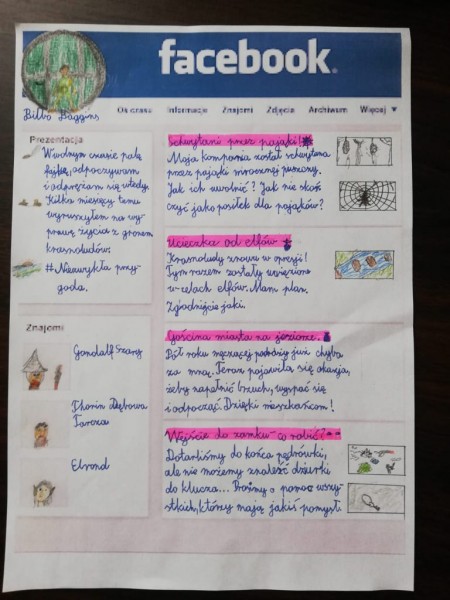 facebook
Bilbo Baggins
Oś czasu Informacje Znajomi Zdjęcia Archiwum Więcej
Prezentacja
W wolnym czasie palę
fajkę, odpoczywam
i odprężam się wtedy.
Kilka miesięcy temu
wyruszyłem na wy-
prawę życia z gronem
krasnoludów.
#Niezwykła przy-
goda.
Znajomi
Gandalf Szary
Thorin Dębowa
Tarcza
Elrond
Schwytani przez pająki!
Moja kompania został schwytana
przez pająki mrocznej puszczy.
Jak ich uwolnić? Jak nie skoń
czyć jako posiłek dla pająków?
Ucieczka od elfów
Krasnoludy znowu w opresji!
Tym razem zostały uwięzione
w celach elfów. Mam plan.
Zgadnijcie jaki.
Gościna miasta na jeziorze.
Pół roku męczącej podróży już chyba
za mną. Teraz pojawiła się okazja,
żeby napełnić brzuch, wyspać się
i odpocząć. Dzięki mieszkańcom!
Wejście do zamku-co robić?
Dotarliśmy do końca wędrówki,
ale nie możemy znaleźć dziurki
do klucza... Prosimy o pomoc wszy-
stkich, którzy mają jakiś pomysł!